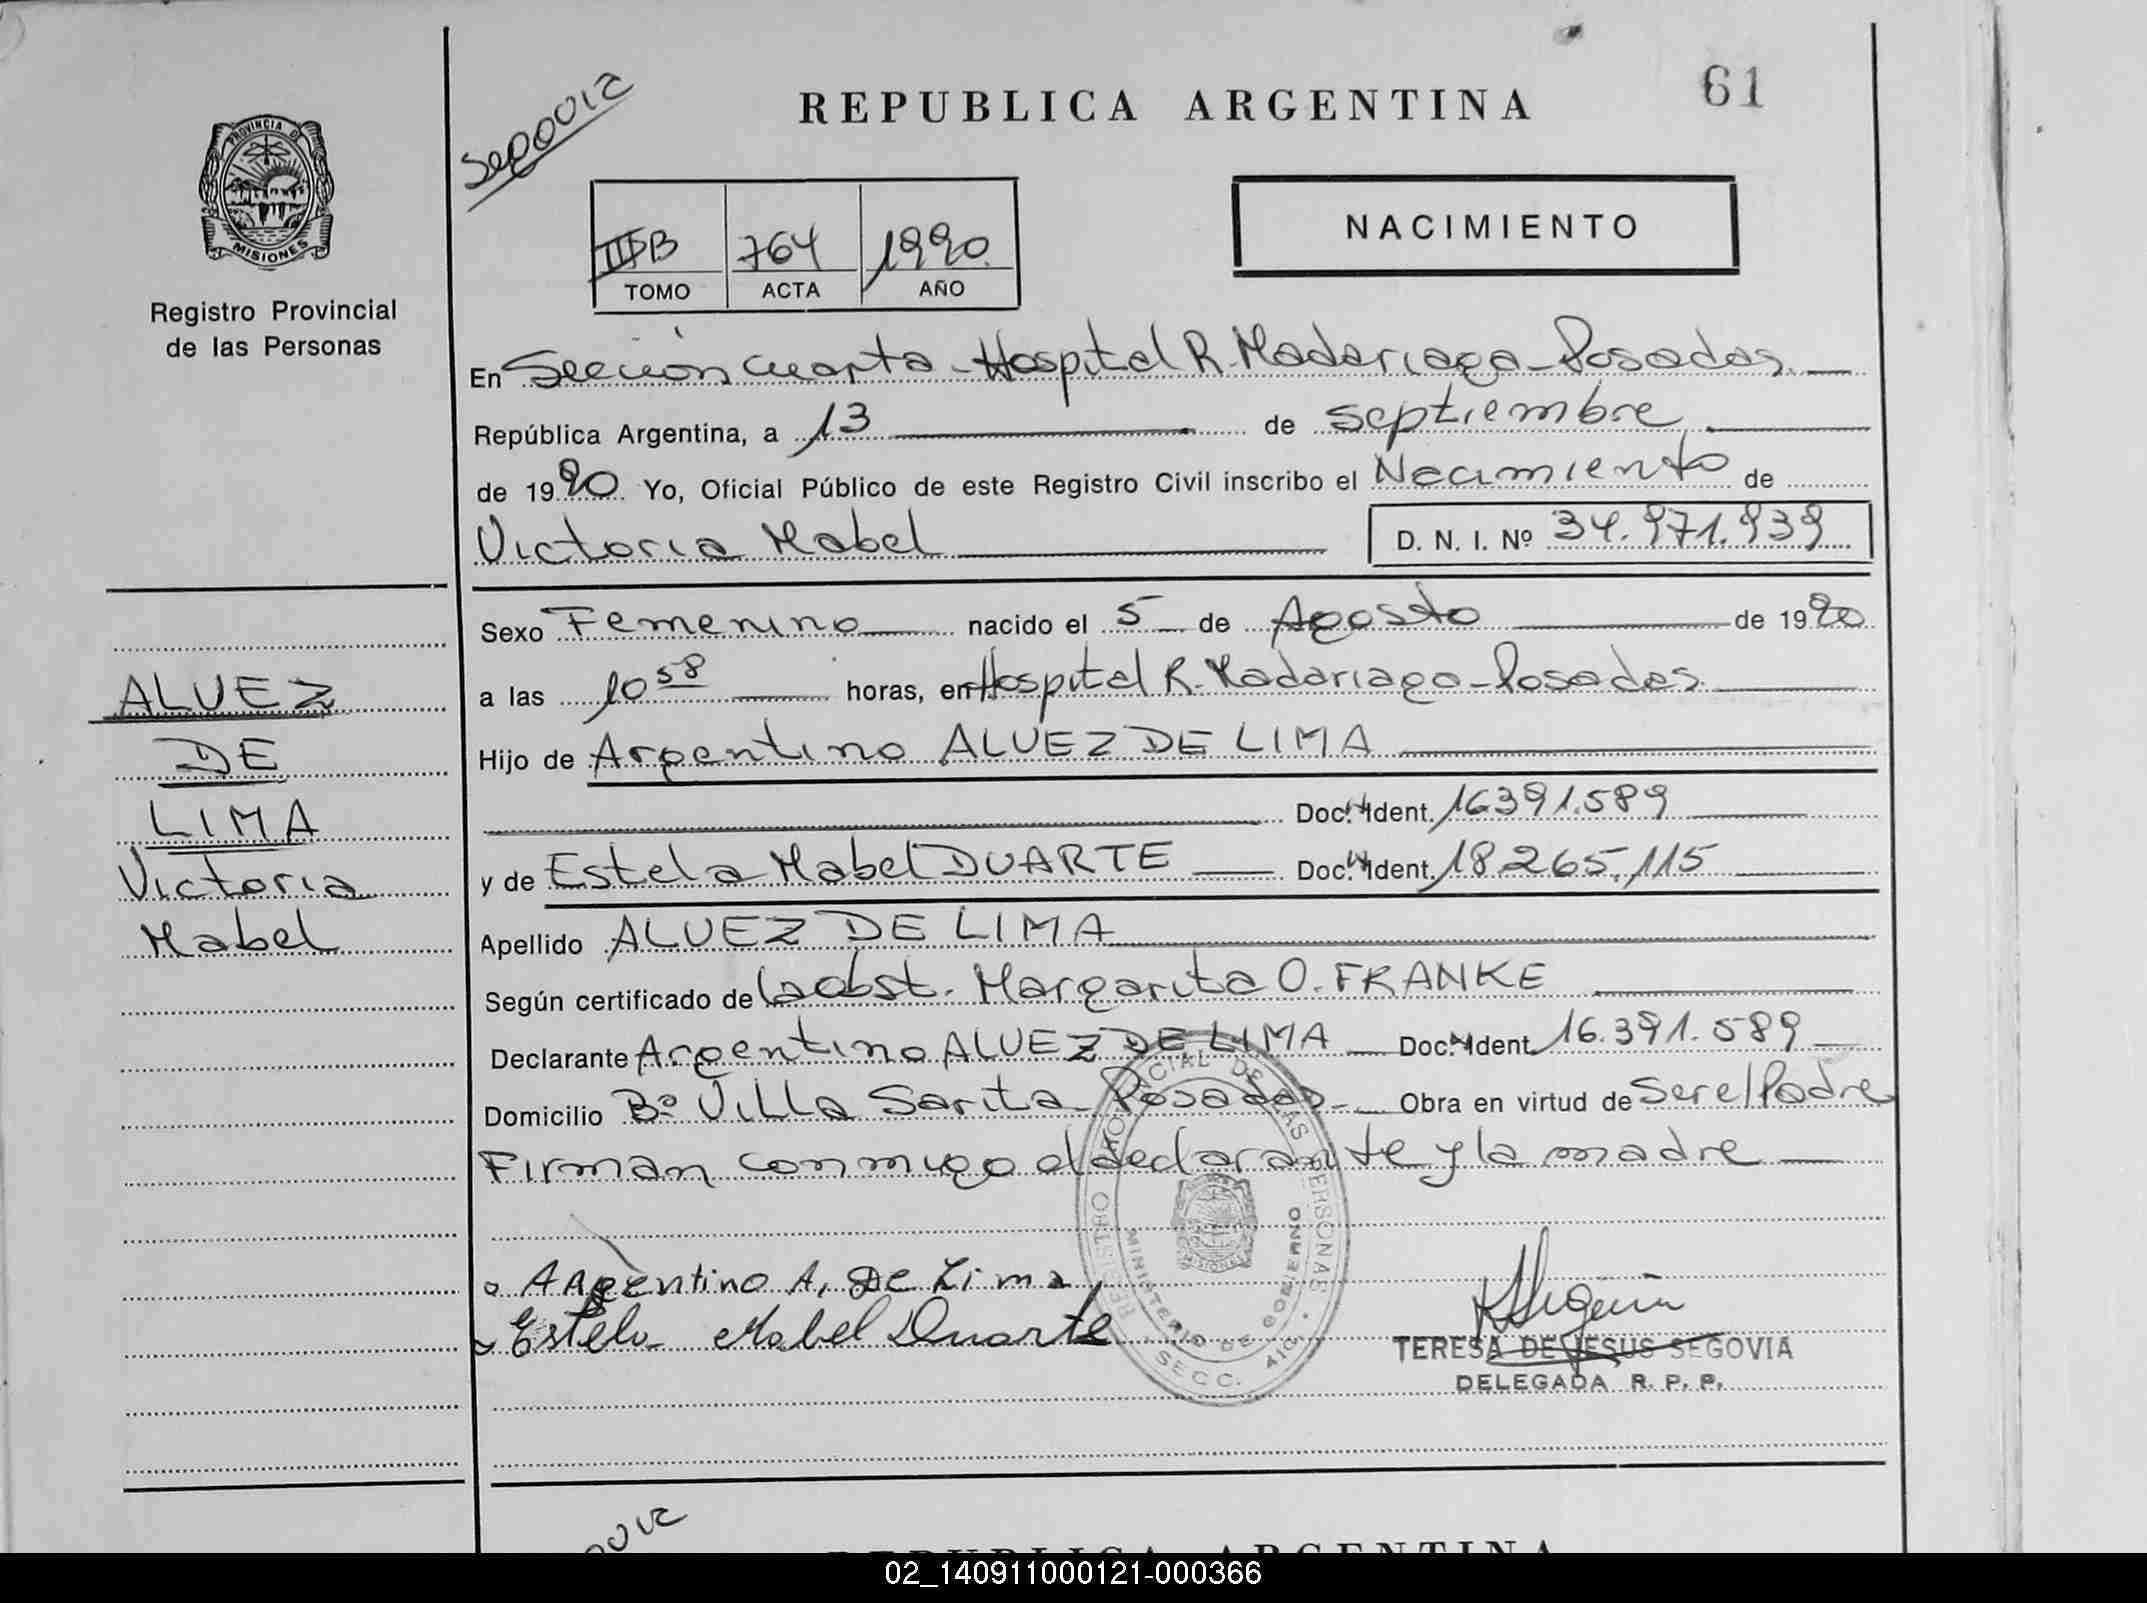 REPUBLICA ARGENTINA
61
PROVINCIA DE
MISIONES
Registro Provincial
de las Personas
764 1990
TOMO ACTA AÑO
NACIMIENTO
En Sección Cuarta - Hospital R. Madariaga - Posadas
República Argentina, a 13 de Septiembre
de 1990 Yo, Oficial Público de este Registro Civil inscribo el Nacimiento de
Victoria Mabel D. N. I. Nº 34.971.939
Sexo Femenino nacido el 5 de Agosto de 1990
a las 10 58 horas, en Hospital R. Madariaga - Posadas
Hijo de Argentino ALVEZ DE LIMA
Doc. Ident. 16391.589
y de Estela Mabel DUARTE Doc. Ident. 18.265.115
Apellido ALVEZ DE LIMA
Según certificado de la obst. Margarita O. FRANKE
Declarante Argentino ALVEZ DE LIMA Doc. Ident. 16.391.589
Domicilio Bº Villa Sarita Posadas Obra en virtud de Ser el Padre
Firman conmigo el declarante y la madre
ALVEZ
DE
LIMA
Victoria
Mabel
Argentino A, De Lima
Estela Mabel Duarte
REGISTRO PROVINCIAL DE LAS PERSONAS
MINISTERIO DE GOBIERNO
MISIONES
SECC. 4ta
TERESA DE JESUS SEGOVIA
DELEGADA R. P. P.
REPUBLICA ARGENTINA
02_140911000121-000366